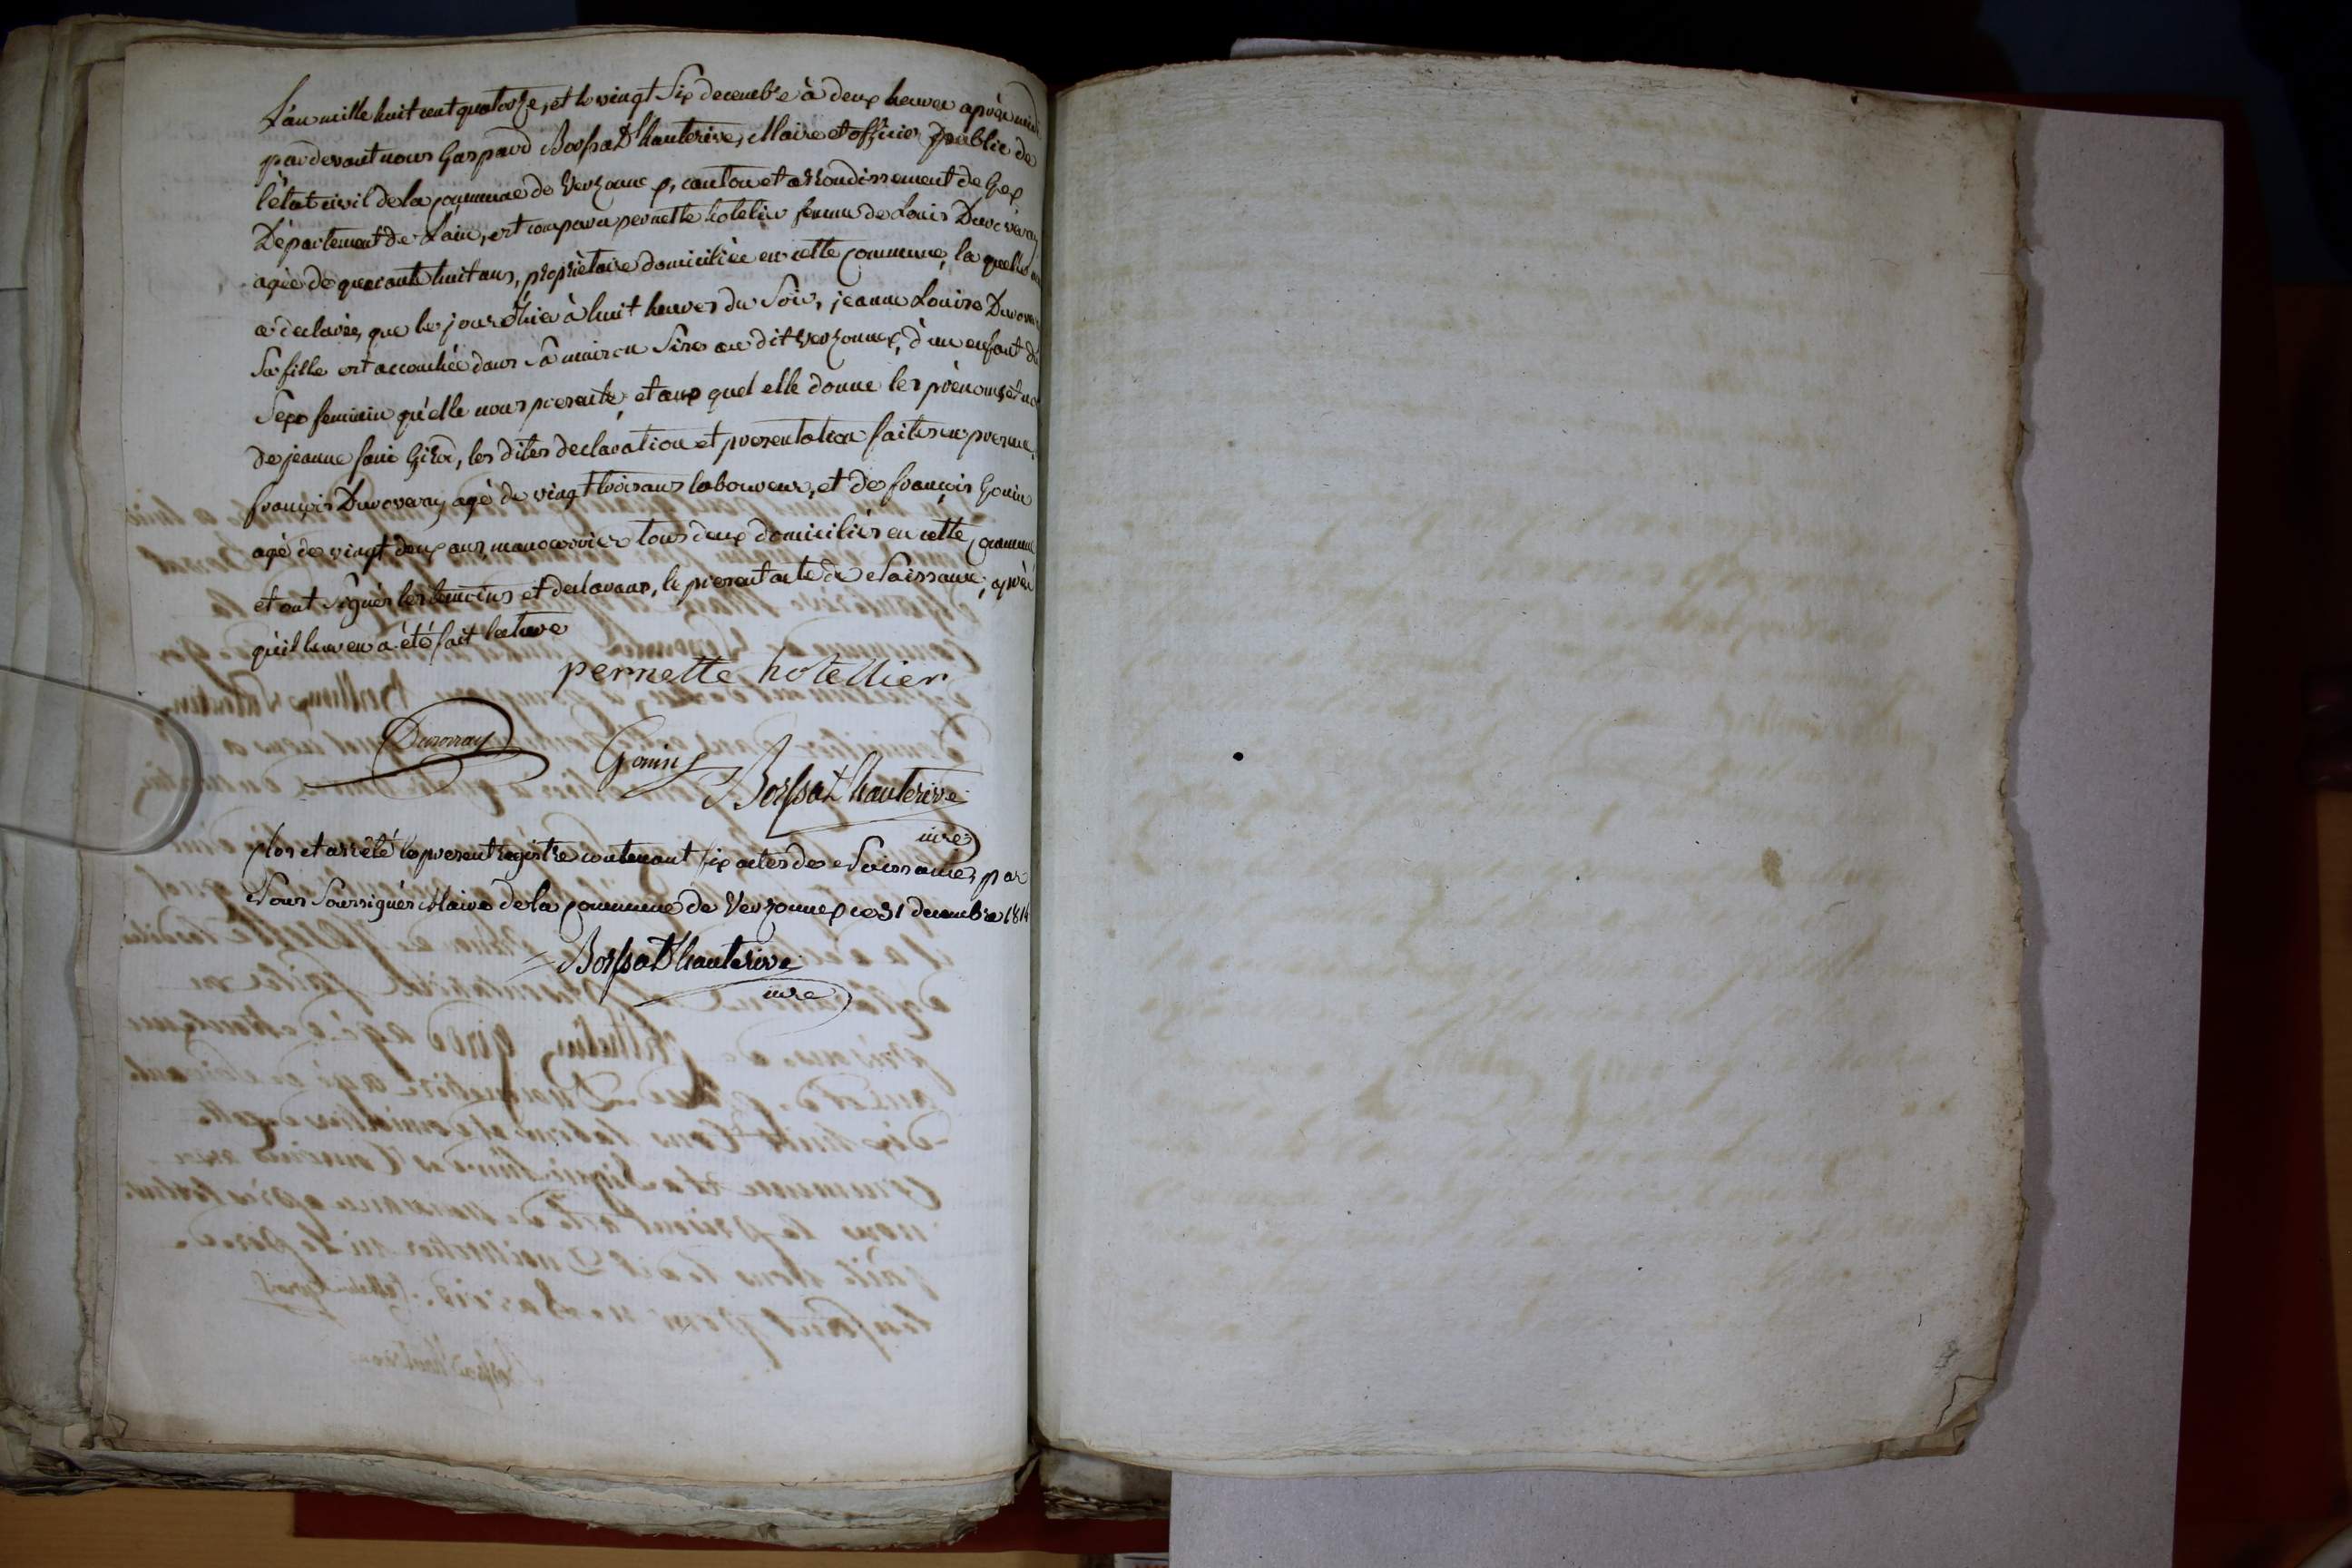 L'an mille huit cent quatorze, et le vingt Six decembre à deux heures après midi
par devant nous Gaspard Borssat D'hauterive, Maire et officier public de
l'état civil de la commune de Verzonnex, canton et arrondissement de Gex
Département de Lain, est comparu pernette hotelier femme de Louis Duroveray
agée de quarante huit ans, propriètaire domiciliée en cette commune, la quelle
a declarée, que le jour d'hier à huit heures du Soir, jeanne Louise Durover
Sa fille est accouchée dans Sa maison Sise au dit Verzonnex, d'un enfant du
Sexe feminin qu'elle nous presente, et auquel elle donne les prènoms et nom
de jeanne fani Girod, les dites declaration et presentation faites en presence
françois Duroveray agé de vingt trois ans laboureur, et de françois Gonin
agé de vingt deux ans, manouvrier tous deux domiciliés en cette commune
et ont Signés les temoins et declarans, le present acte de Naissance, après
qu'il leur en a été fait lecture
pernette hotellier
Duroveray
Gonin
Borssat D'hauterive
mre
Clos et arrêté le present registre contenant Six actes de Naissances, par
Nous Soussignés Maire de la commune de Verzonnex ce 31 decembre 1814
Borssat D'hauterive
mre